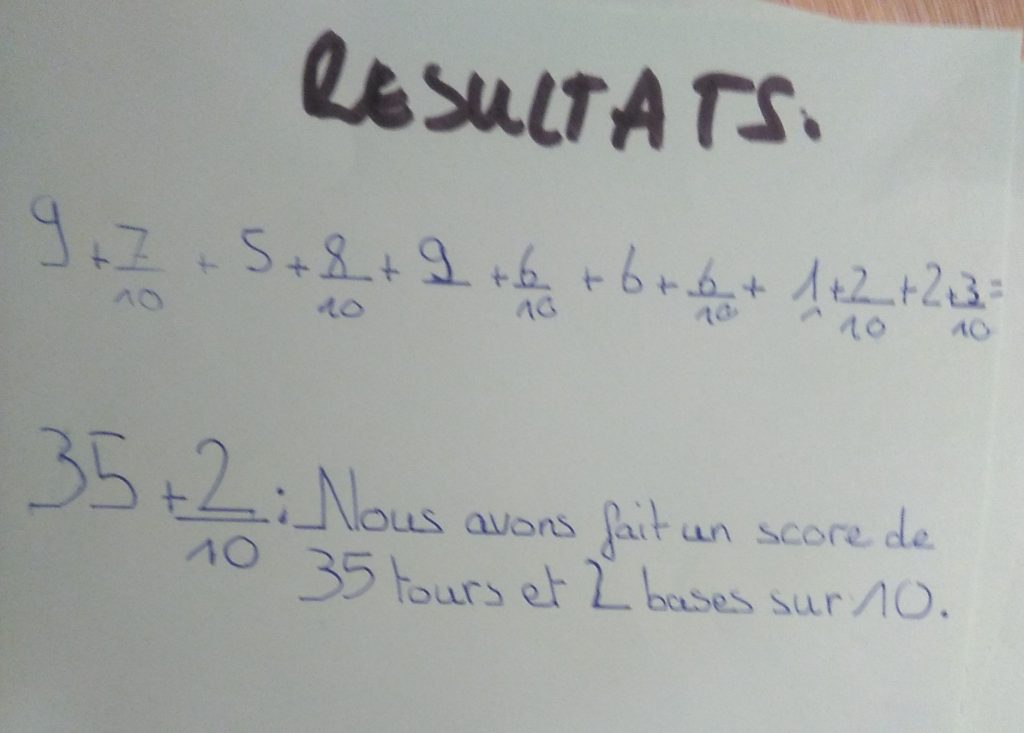 RESULTATS.
9 + 7/10 + 5 + 8/10 + 9 + 6/10 + 6 + 6/10 + 1 + 2/10 + 2 + 3/10 =
35 + 2/10 : Nous avons fait un score de
35 tours et 2 bases sur 10.